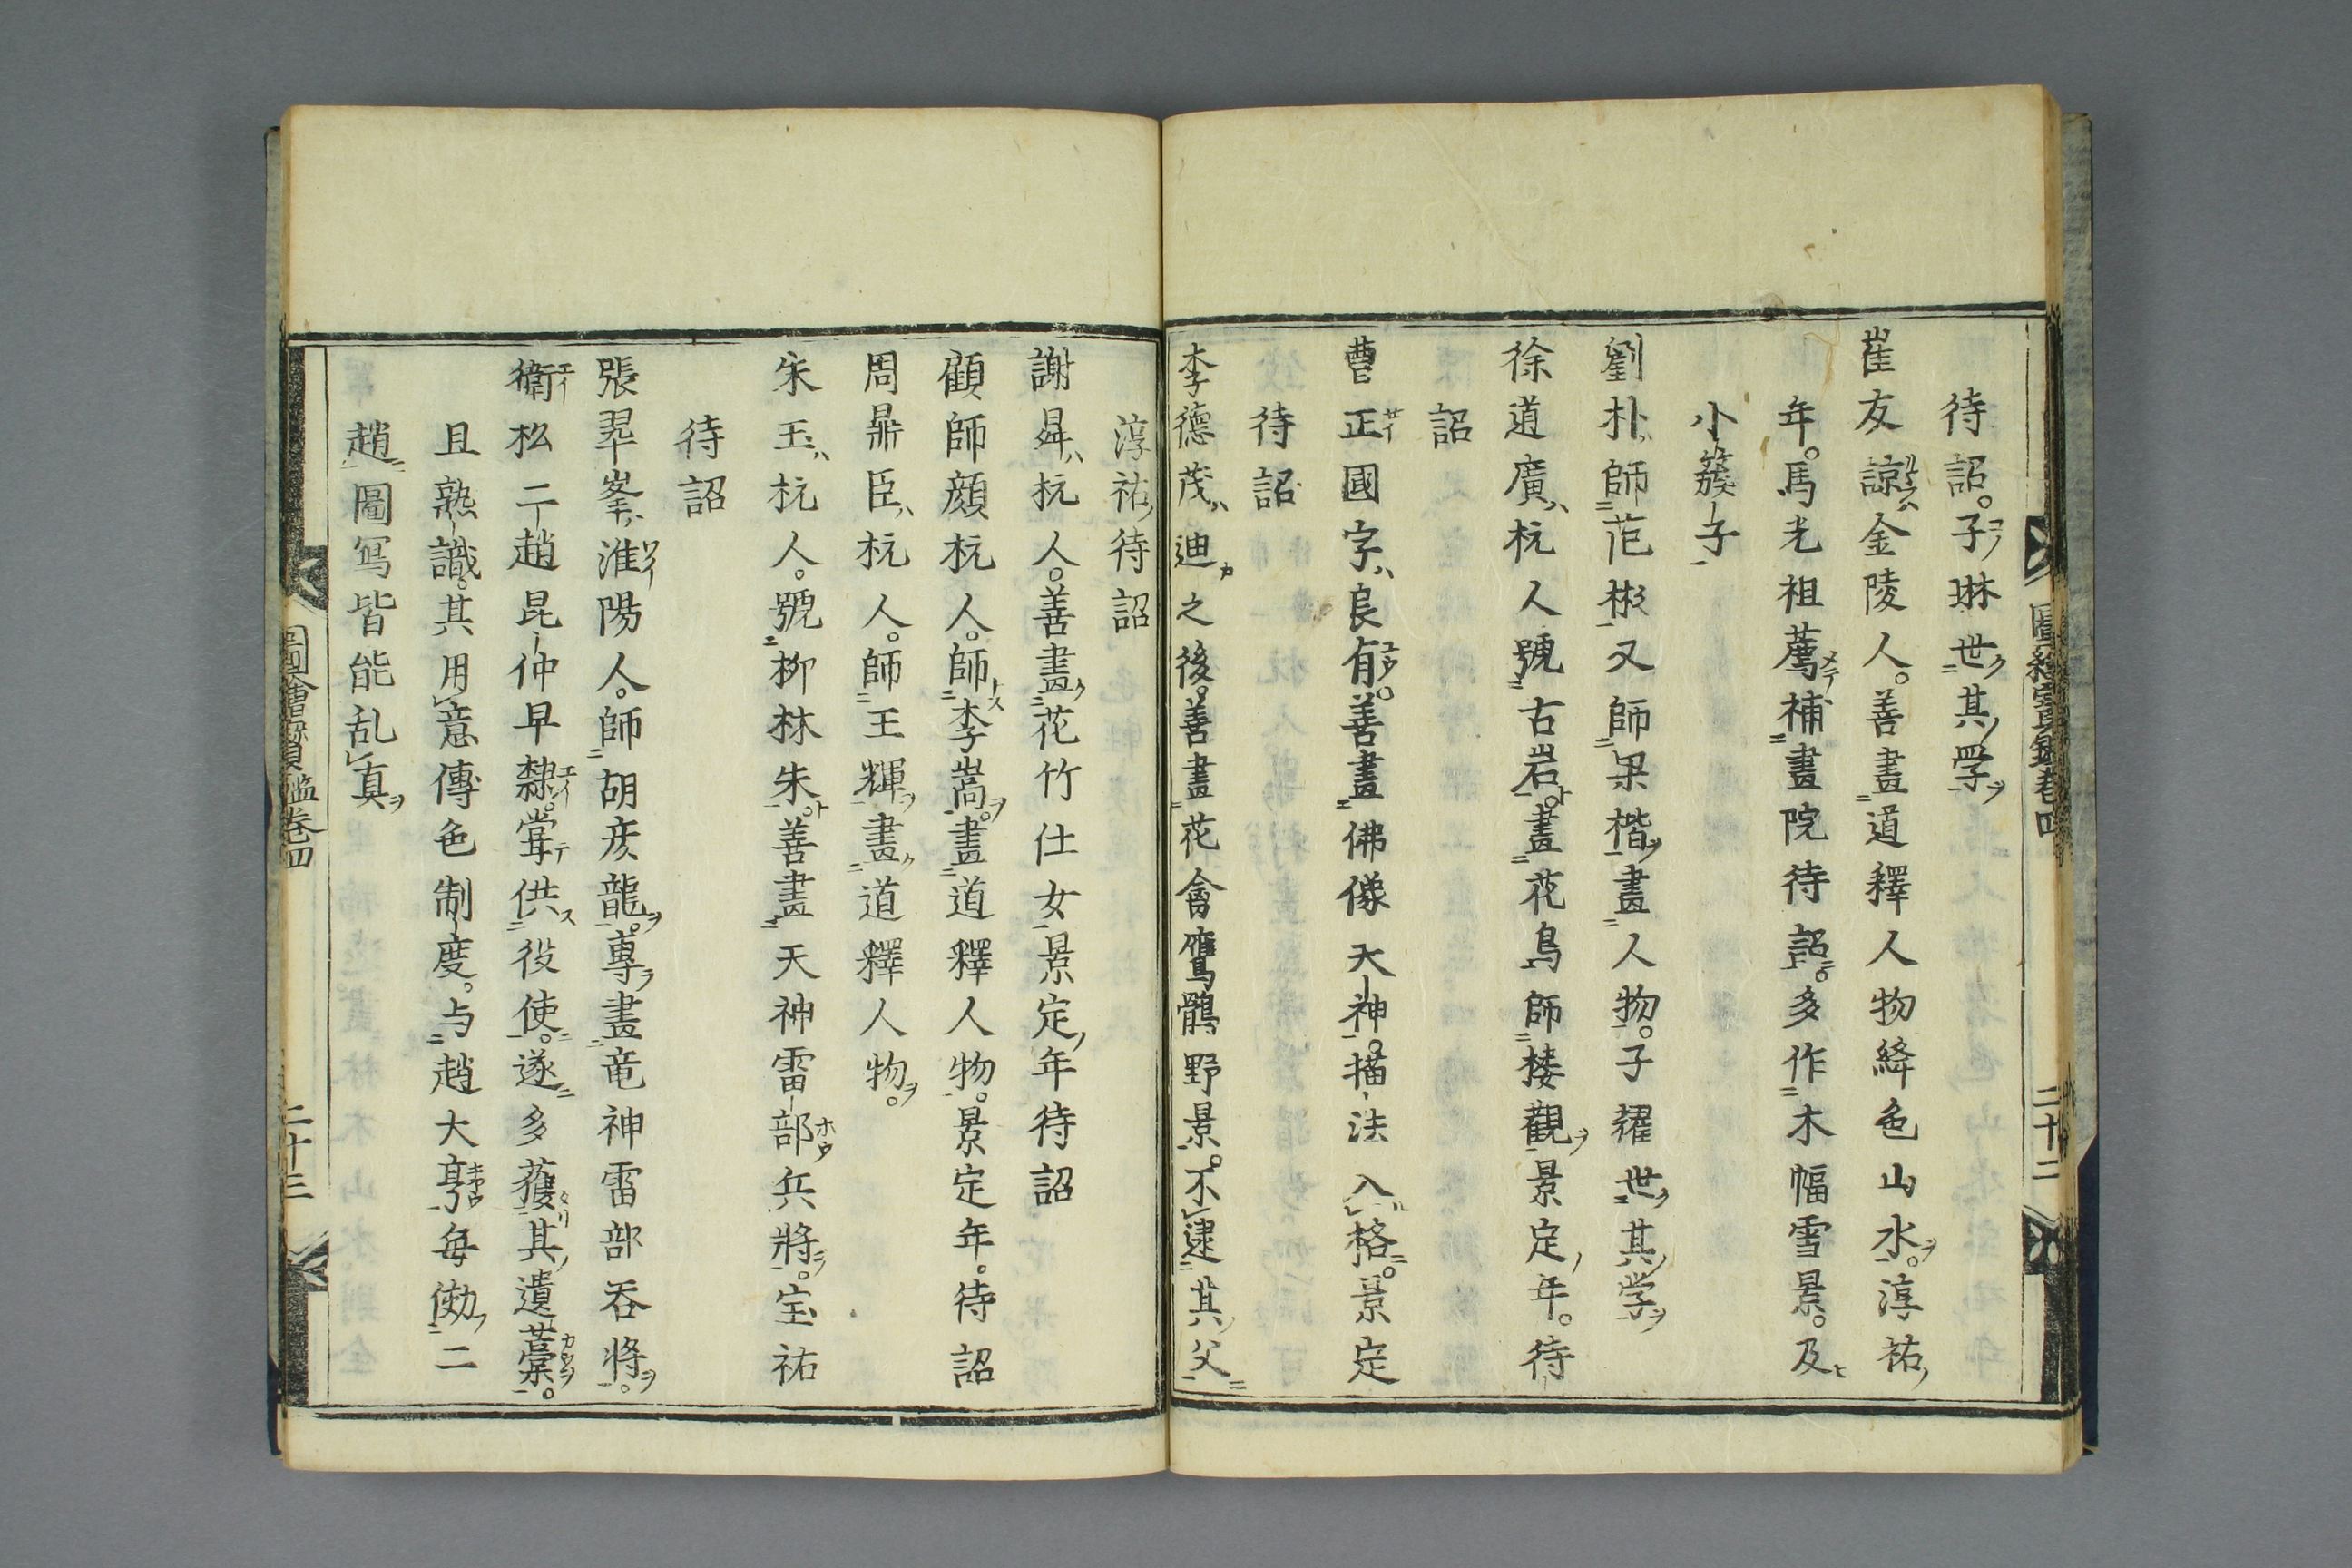 待詔。子琳世其學
崔友諒金陵人。善畫道釋人物絳色山水。淳祐
年。馬光祖薦補畫院待詔。多作木幅雪景。及
小簇子
劉朴師范彬又師梁楷畫人物。子耀世其学
徐道廣杭人號古岩。畫花鳥師楼觀景定年。待
詔
曹正國字良有。善畫佛像天神。描法入格。景定
待詔
李德茂迪之後。善畫花禽鷹鶻野景。不逮其父
淳祐待詔
謝昇杭人。善畫花竹仕女景定年待詔
顧師顔杭人。師李嵩。畫道釋人物。景定年。待詔
周鼎臣杭人。師王輝畫道釋人物。
朱玉杭人。號柳林朱。善畫天神雷部兵將。宝祐
待詔
張翠峯淮陽人。師胡彦龍。專畫竜神雷部吞將。
衛松二趙昆仲早隸。甞供役使。遂多獲其遺藁。
且熟識。其用意傳色制度。与趙大亨每傚二
趙圖写皆能乱真
圖繪寳鑑卷四
二十三